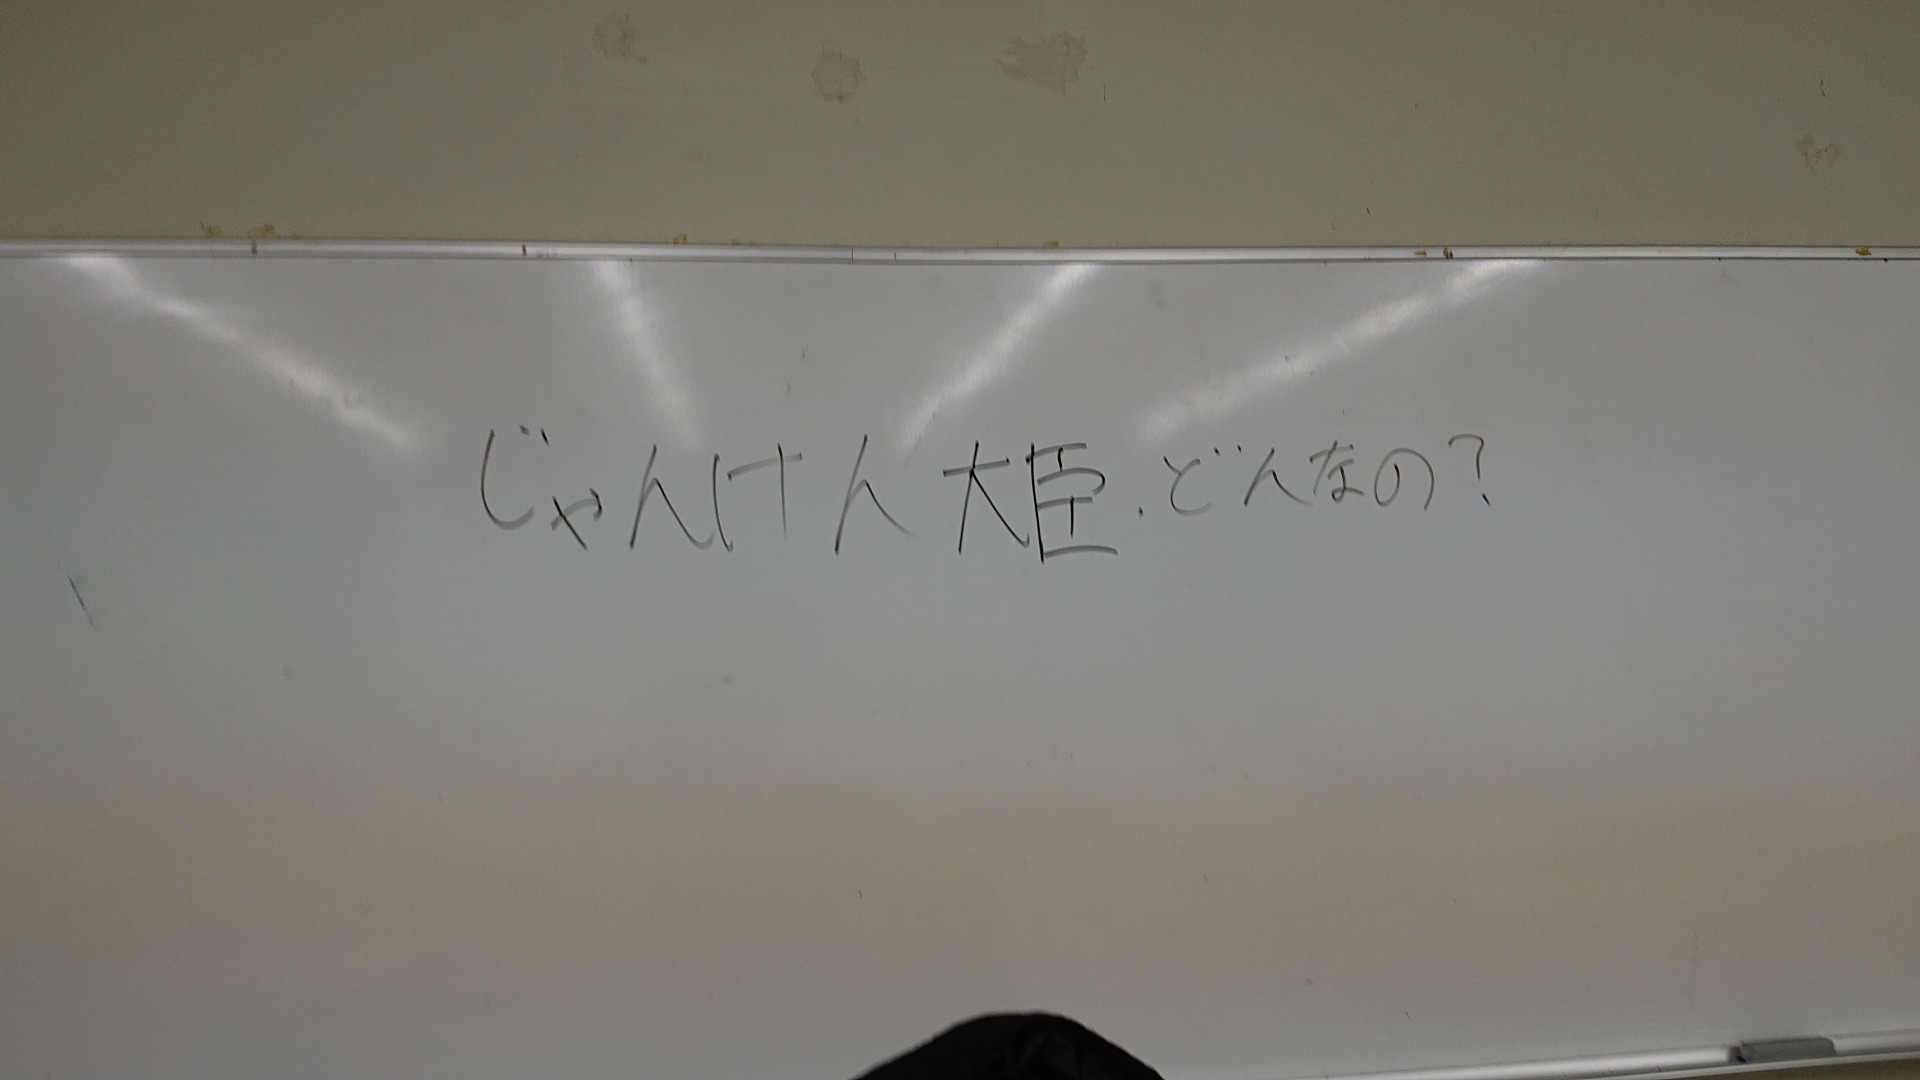 じゃんけん大臣.どんなの?